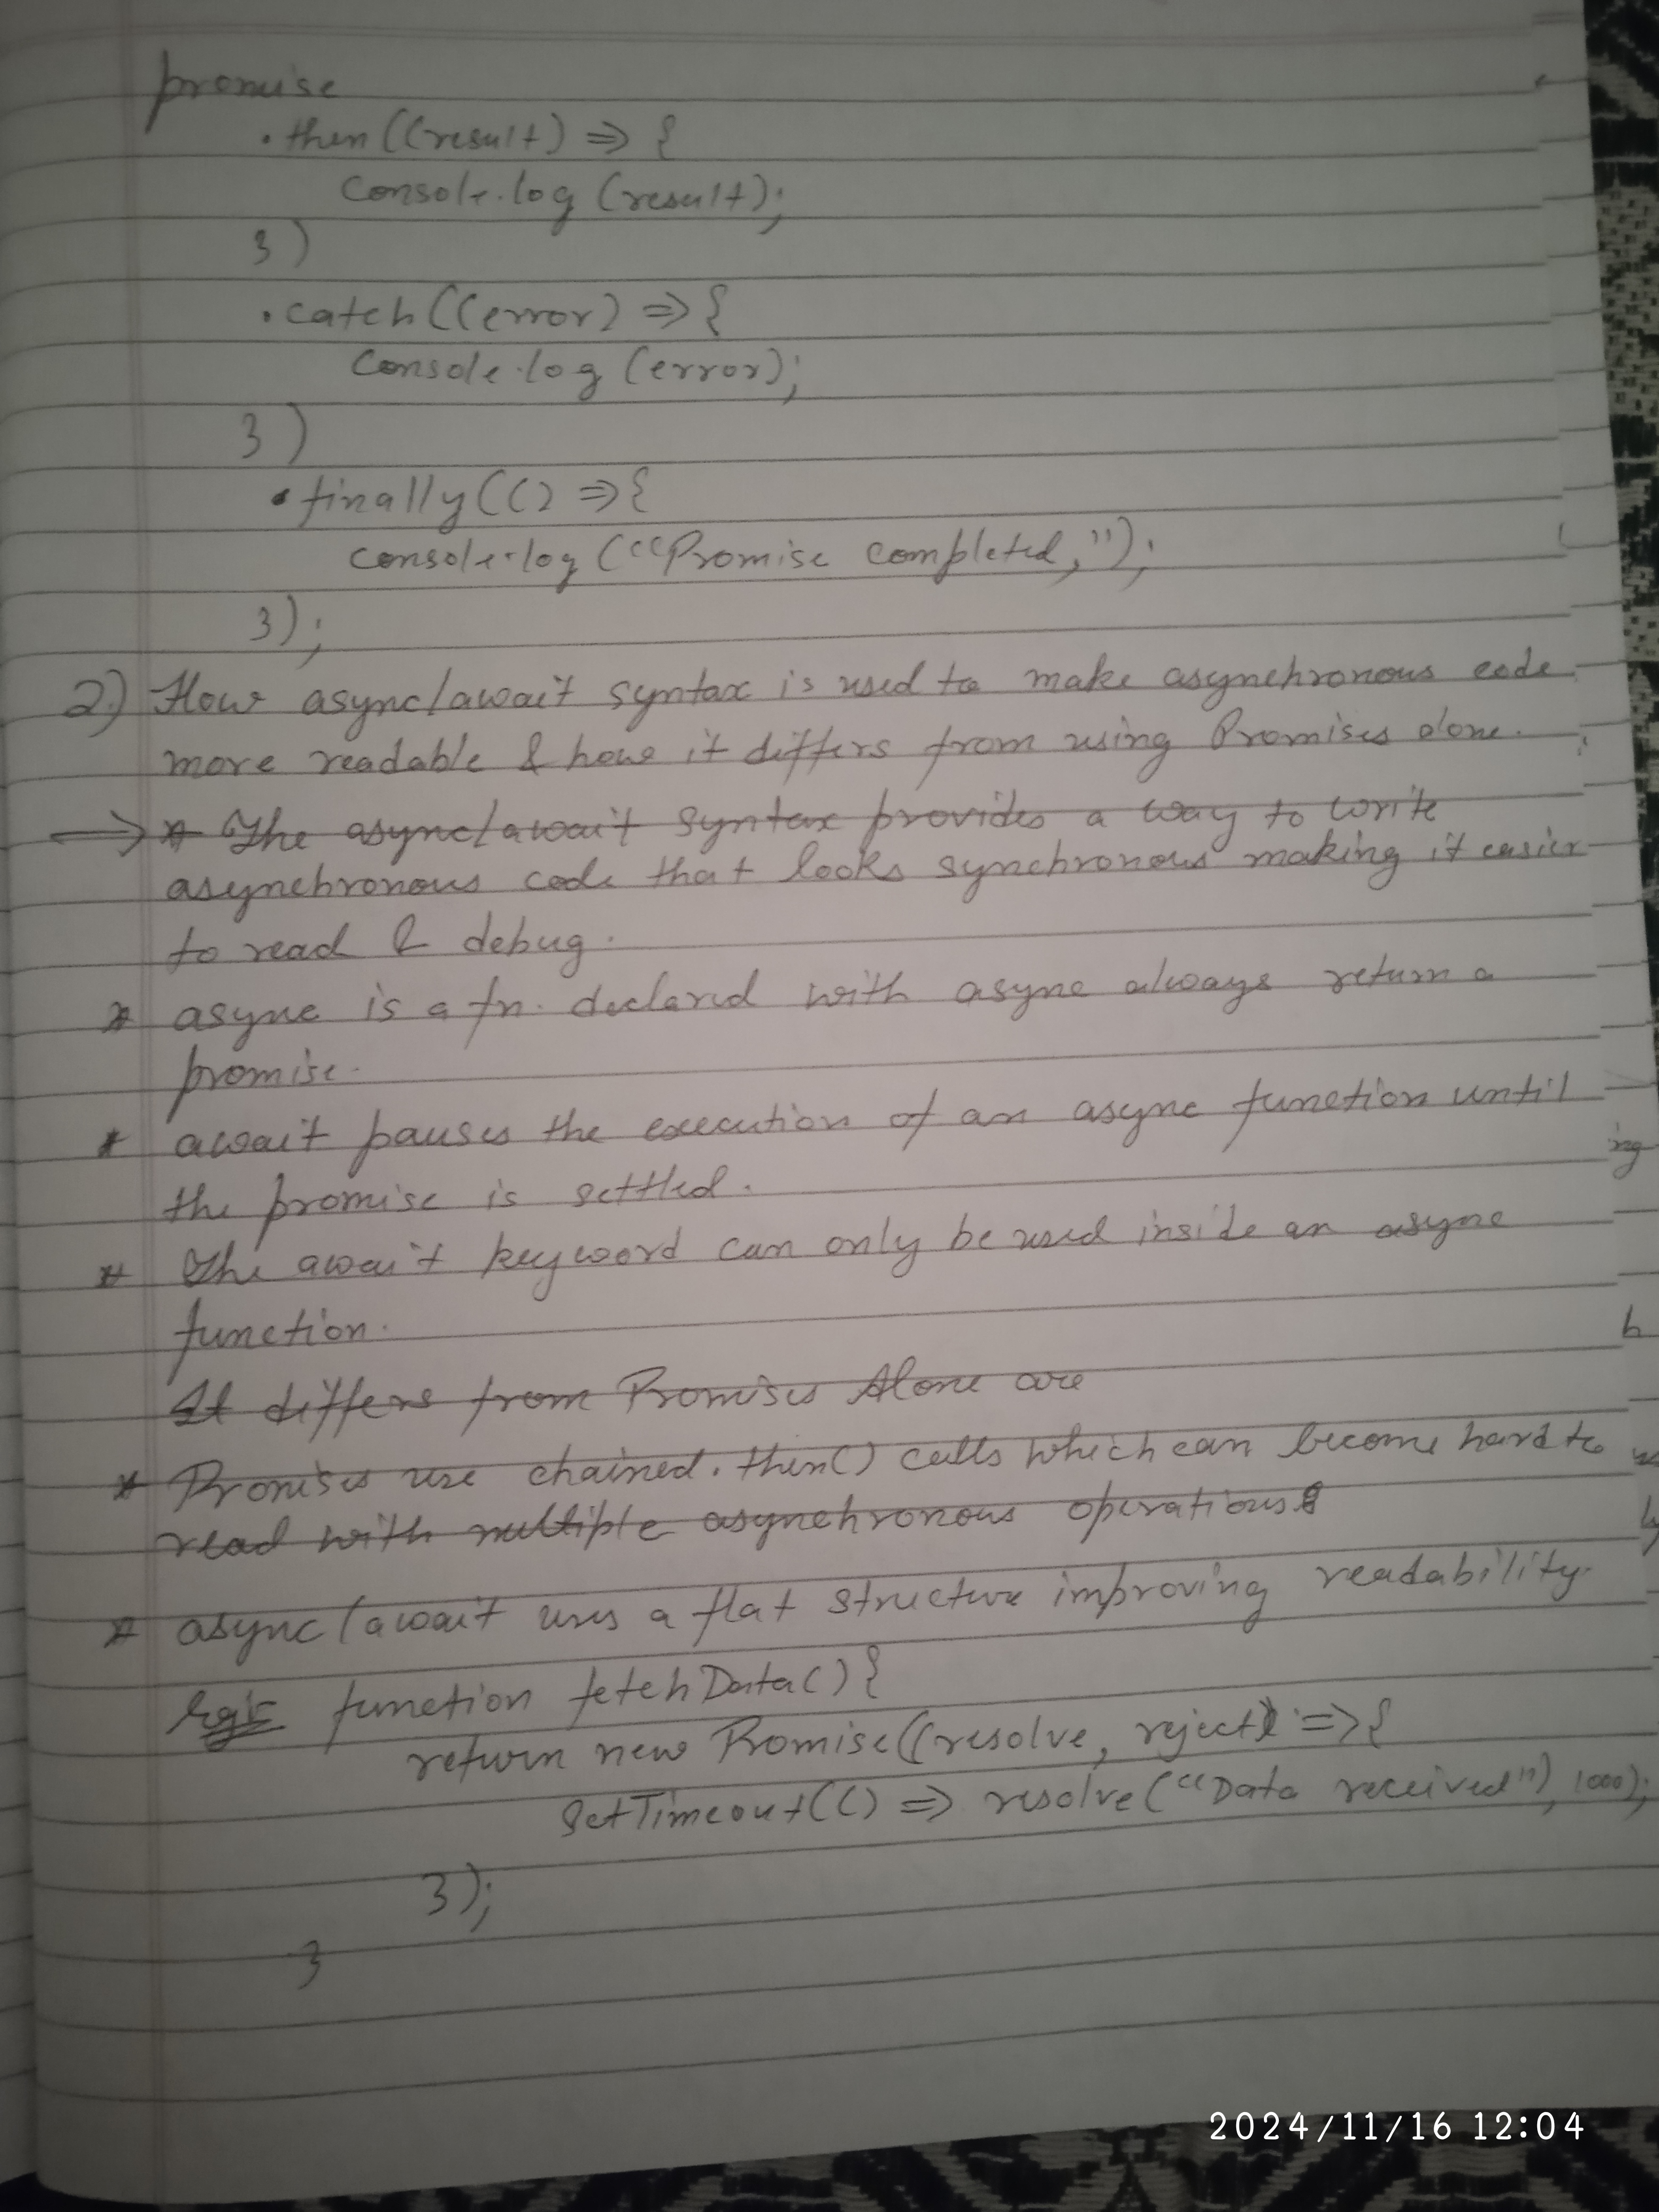 promise
.then((result) => {
console.log (result);
})
.catch((error) => {
console.log (error);
})
.finally(() => {
console.log ("Promise completed,");
});
2) How async/await syntax is used to make asynchronous code
more readable & how it differs from using Promises alone.
=> * The async/await syntax provides a way to write
asynchronous code that looks synchronous making it easier
to read & debug.
* async is a fn. declared with async always return a
promise.
* await pauses the execution of an async function until
the promise is settled.
* The await keyword can only be used inside an async
function.
It differs from Promises Alone are
* Promises use chained .then() calls which can become hard to
read with multiple asynchronous operations
* async/await uses a flat structure improving readability.
function fetchData() {
return new Promise((resolve, reject) => {
setTimeout(() => resolve("Data received"), 1000);
});
}
ing
h
2024/11/16 12:04